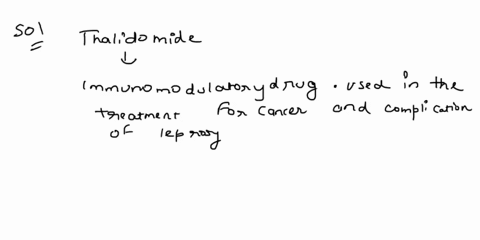 sol Thalidomide
↓
immunomodulatory drug . used in the
treatment for cancer and complication
of leprosy